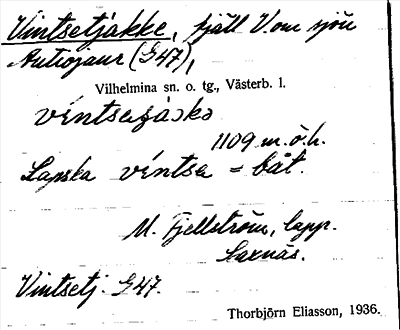 Vintsetjåkke, fjäll V. om sjön
Autiojaur (G47),
Vilhelmina sn. o. tg., Västerb. l.
1109 m. ö. h.
Lapska víntsa = båt.
M. Fjellström, lapp.
Saxnäs.
Vintsetj. G47.
Thorbjörn Eliasson, 1936.